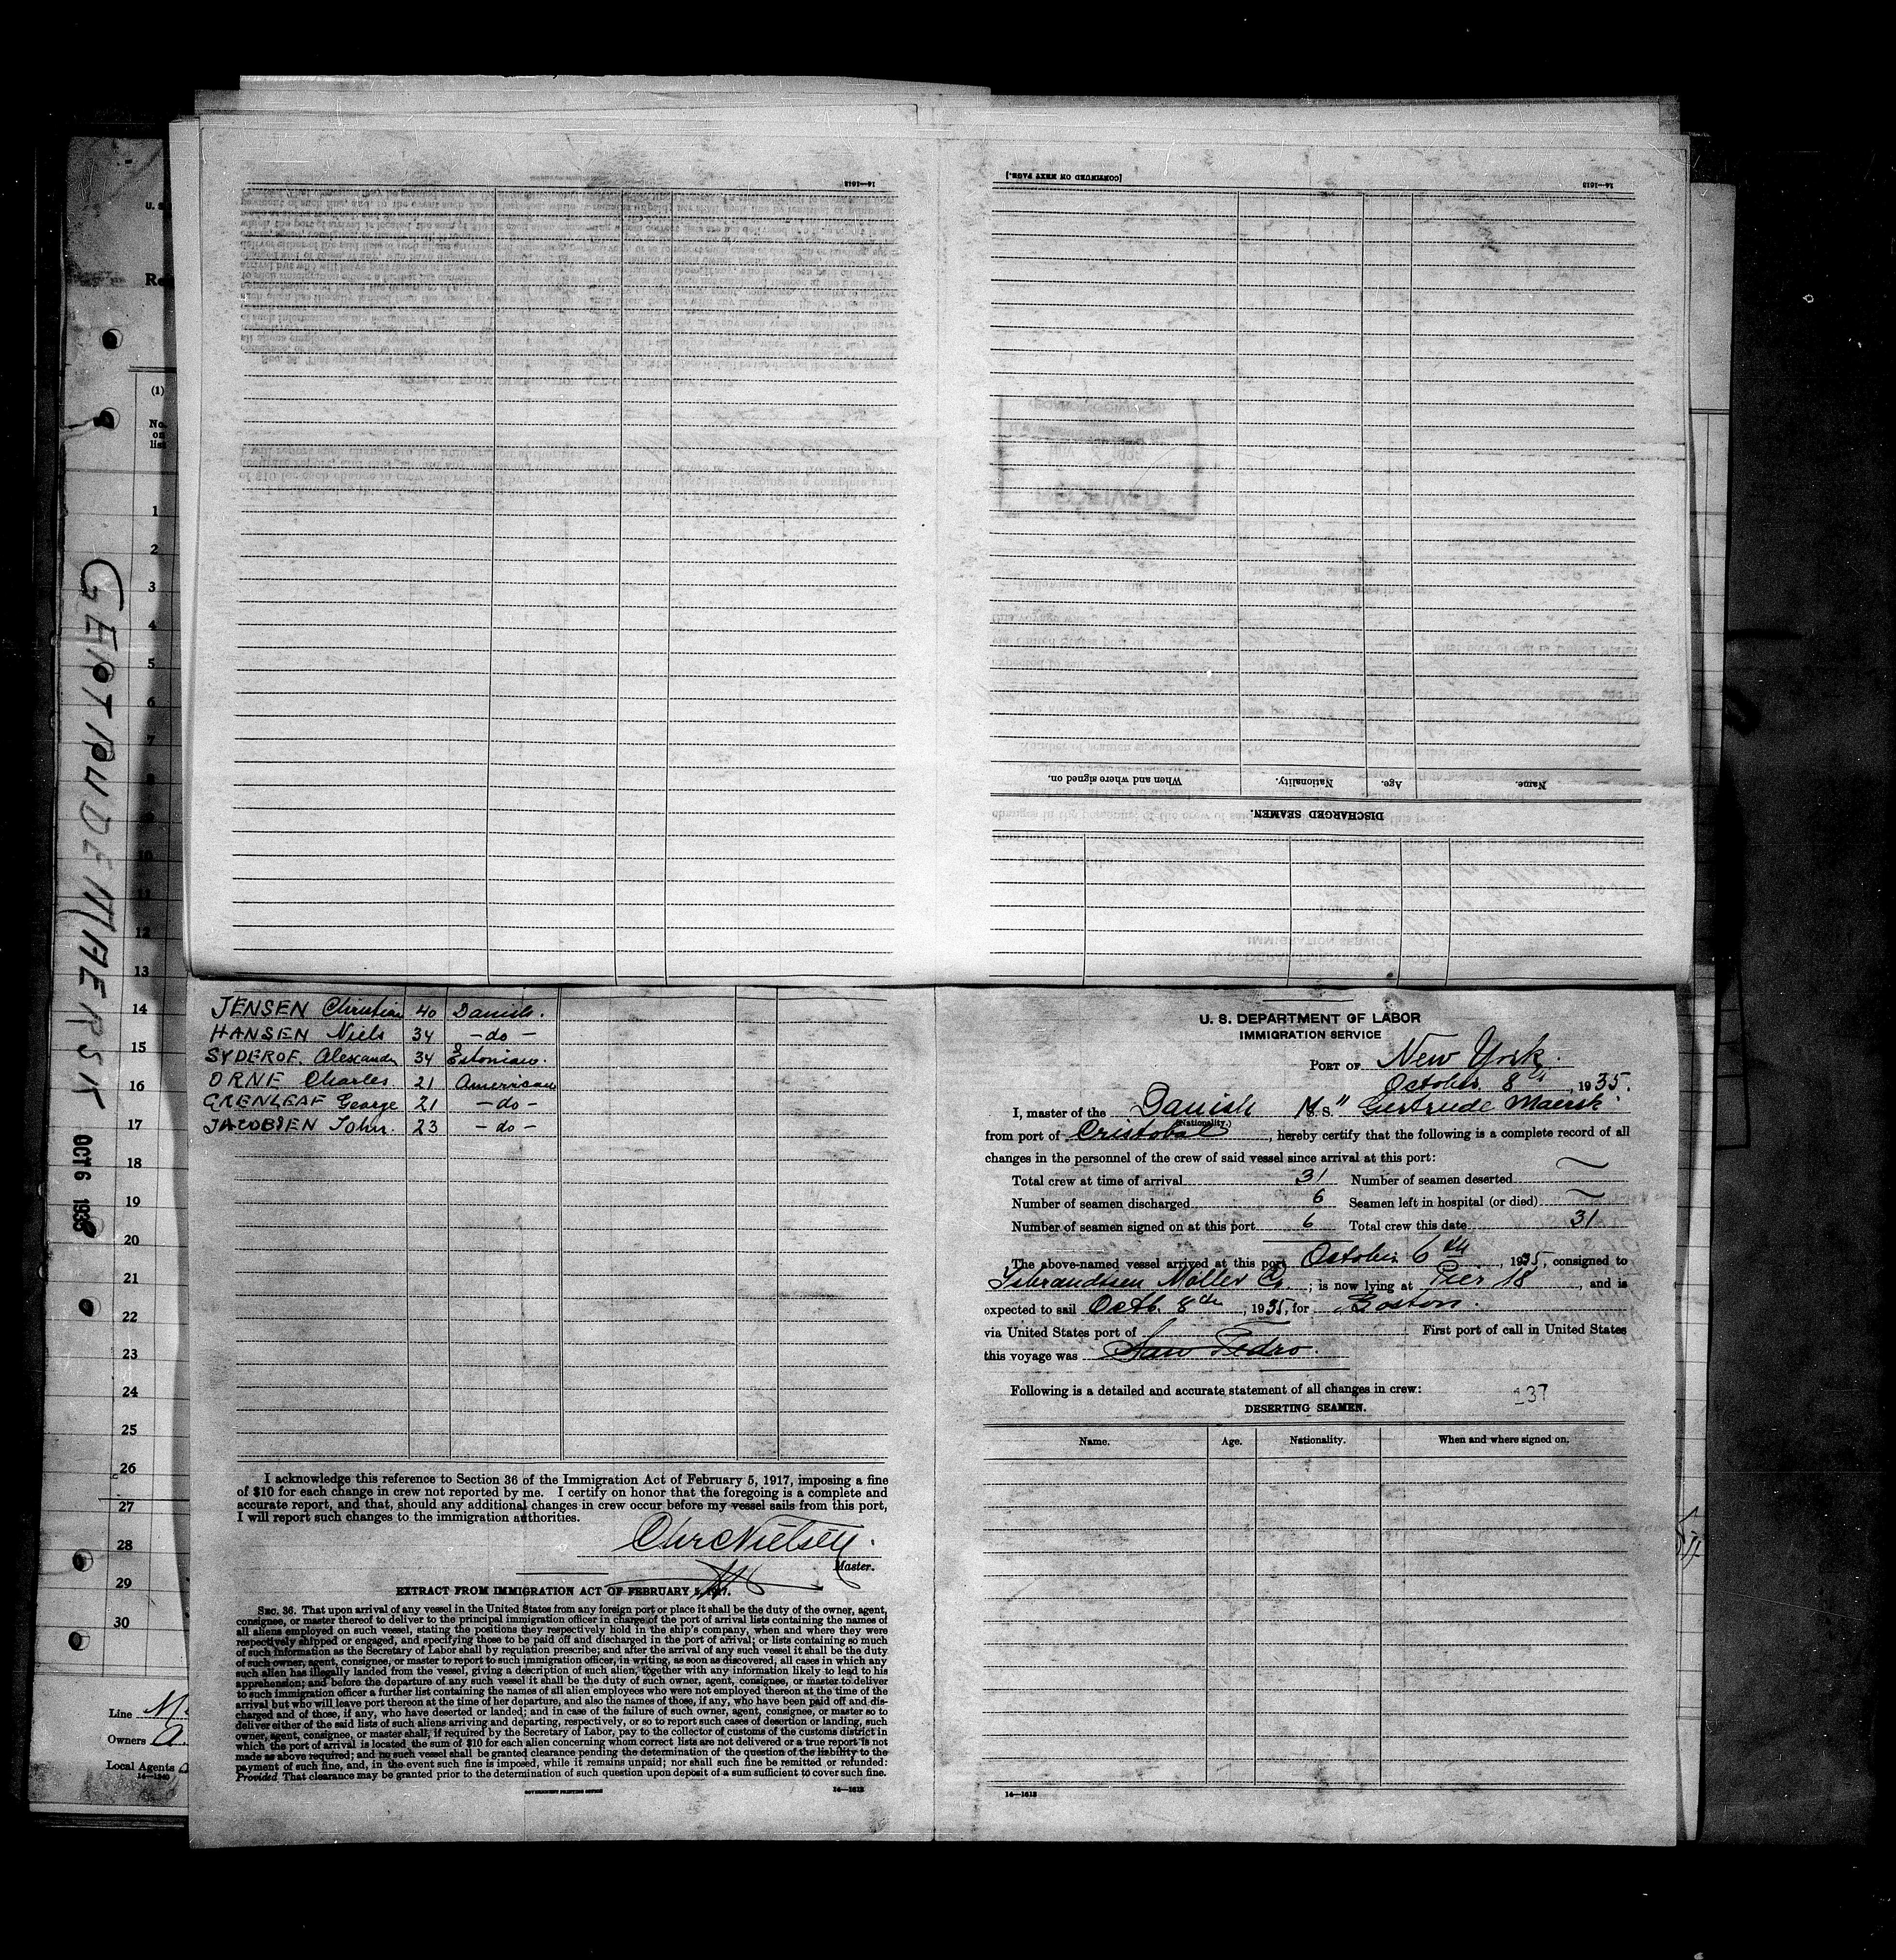 [CONTINUED ON NEXT PAGE.]
14—1613
14—1613
Name.
Age.
Nationality.
When and where signed on.
DISCHARGED SEAMEN.
(1)
No. on list
1
2
3
4
5
6
7
8
9
10
11
12
13
14
15
16
17
18
19
20
21
22
23
24
25
26
27
28
29
30
GERTRUDE MAERSK
OCT 6 1935
Line
Owners
Local Agents
14—1240
JENSEN Christian 40 Danish.
HANSEN Niels 34 — do —
SYDEROF. Alexander 34 Estonian.
ORNE Charles 21 American
GRENLEAF George 21 — do —
JACOBSEN John. 23 — do —
I acknowledge this reference to Section 36 of the Immigration Act of February 5, 1917, imposing a fine
of $10 for each change in crew not reported by me. I certify on honor that the foregoing is a complete and
accurate report, and that, should any additional changes in crew occur before my vessel sails from this port,
I will report such changes to the immigration authorities.
Chr Nielsen.
Master.
EXTRACT FROM IMMIGRATION ACT OF FEBRUARY 5, 1917.
SEC. 36. That upon arrival of any vessel in the United States from any foreign port or place it shall be the duty of the owner, agent,
consignee, or master thereof to deliver to the principal immigration officer in charge of the port of arrival lists containing the names of
all aliens employed on such vessel, stating the positions they respectively hold in the ship's company, when and where they were
respectively shipped or engaged, and specifying those to be paid off and discharged in the port of arrival; or lists containing so much
of such information as the Secretary of Labor shall by regulation prescribe; and after the arrival of any such vessel it shall be the duty
of such owner, agent, consignee, or master to report to such immigration officer, in writing, as soon as discovered, all cases in which any
such alien has illegally landed from the vessel, giving a description of such alien, together with any information likely to lead to his
apprehension; and before the departure of any such vessel it shall be the duty of such owner, agent, consignee, or master to deliver
to such immigration officer a further list containing the names of all alien employees who were not employed thereon at the time of the
arrival but who will leave port thereon at the time of her departure, and also the names of those, if any, who have been paid off and dis-
charged and of those, if any, who have deserted or landed; and in case of the failure of such owner, agent, consignee, or master so to
deliver either of the said lists of such aliens arriving and departing, respectively, or so to report such cases of desertion or landing, such
owner, agent, consignee, or master shall, if required by the Secretary of Labor, pay to the collector of customs of the customs district in
which the port of arrival is located the sum of $10 for each alien concerning whom correct lists are not delivered or a true report is not
made as above required; and no such vessel shall be granted clearance pending the determination of the question of the liability to the
payment of such fine, and, in the event such fine is imposed, while it remains unpaid; nor shall such fine be remitted or refunded:
Provided, That clearance may be granted prior to the determination of such question upon deposit of a sum sufficient to cover such fine.
GOVERNMENT PRINTING OFFICE
14—1613
U. S. DEPARTMENT OF LABOR
IMMIGRATION SERVICE
PORT OF New York.
October 8th, 1935.
I, master of the Danish M.S. "Gertrude Maersk"
(Nationality.)
from port of Cristobal, hereby certify that the following is a complete record of all
changes in the personnel of the crew of said vessel since arrival at this port:
Total crew at time of arrival 31 Number of seamen deserted
Number of seamen discharged 6 Seamen left in hospital (or died)
Number of seamen signed on at this port 6 Total crew this date 31
The above-named vessel arrived at this port October 6th, 1935, consigned to
Isbrandtsen Moller Co. ; is now lying at Pier 18, and is
expected to sail Octb. 8th, 1935, for Boston.
via United States port of First port of call in United States
this voyage was San Pedro.
Following is a detailed and accurate statement of all changes in crew:
137
DESERTING SEAMEN.
Name. Age. Nationality. When and where signed on.
14—1613